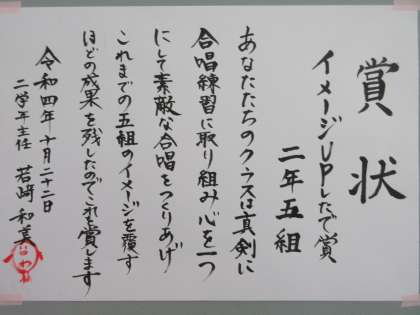 賞状
イメージUPしたで賞
二年五組
あなたたちのクラスは真剣に
合唱練習に取り組み心を一つ
にして素敵な合唱をつくりあげ
これまでの五組のイメージを覆す
ほどの成果を残したのでこれを賞します
令和四年十月二十二日
二学年主任 若﨑和美